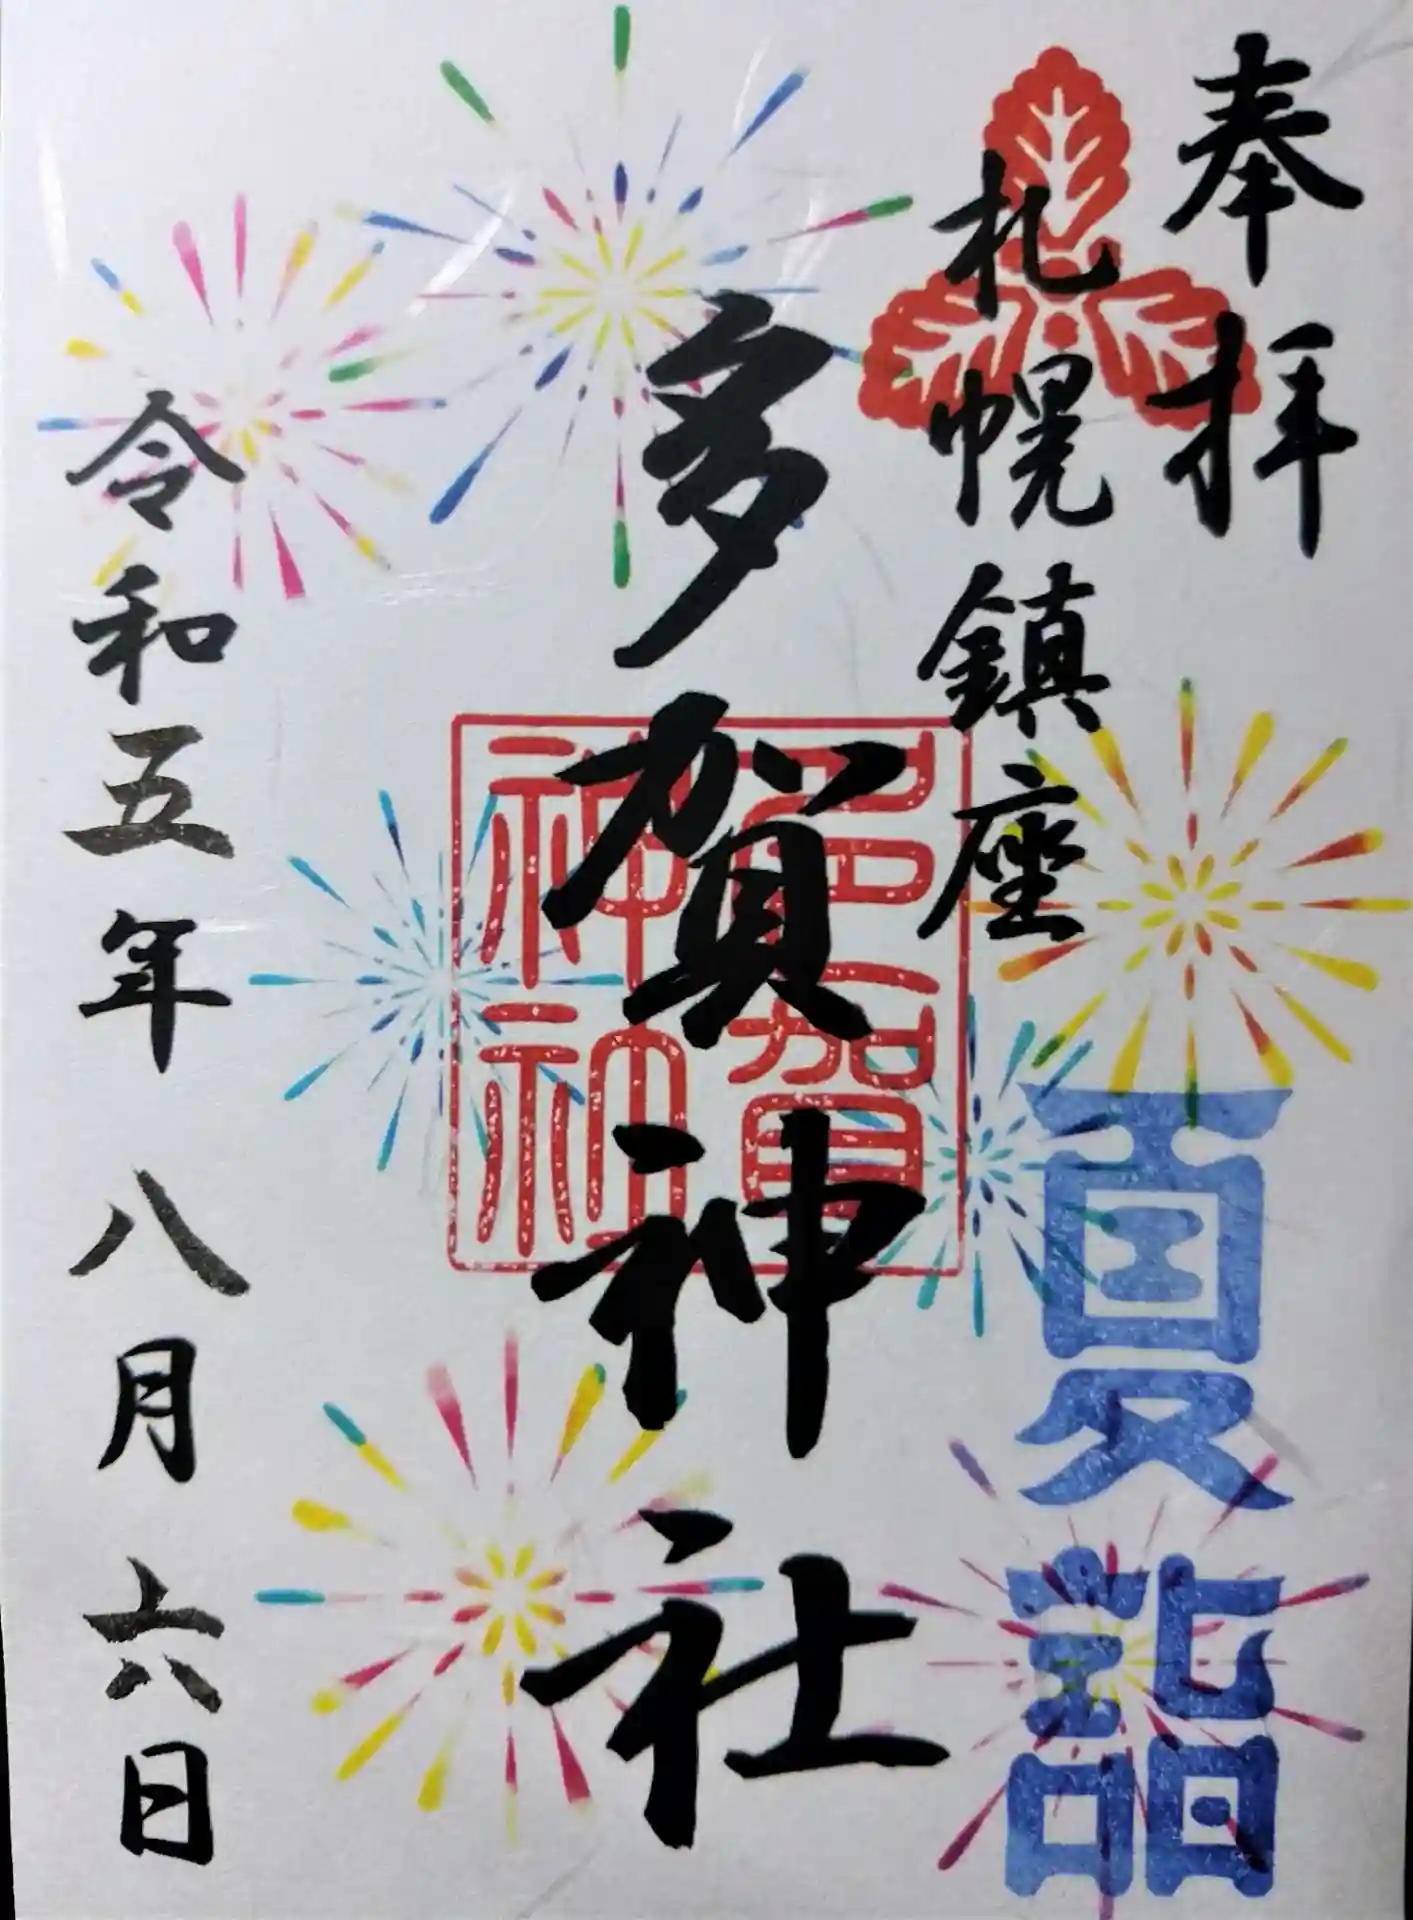 奉拝
札幌鎮座
夏詣
多賀神社
多賀
神社
令和五年八月六日